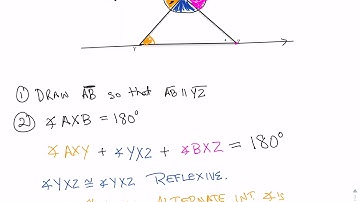 ① DRAW A̅B̅ so that A̅B̅ ∥ Y̅Z̅
② ∡AXB = 180°
∡AXY + ∡YXZ + ∡BXZ = 180°
∡YXZ ≅ ∡YXZ REFLEXIVE.
ALTERNATE INT ∡'s